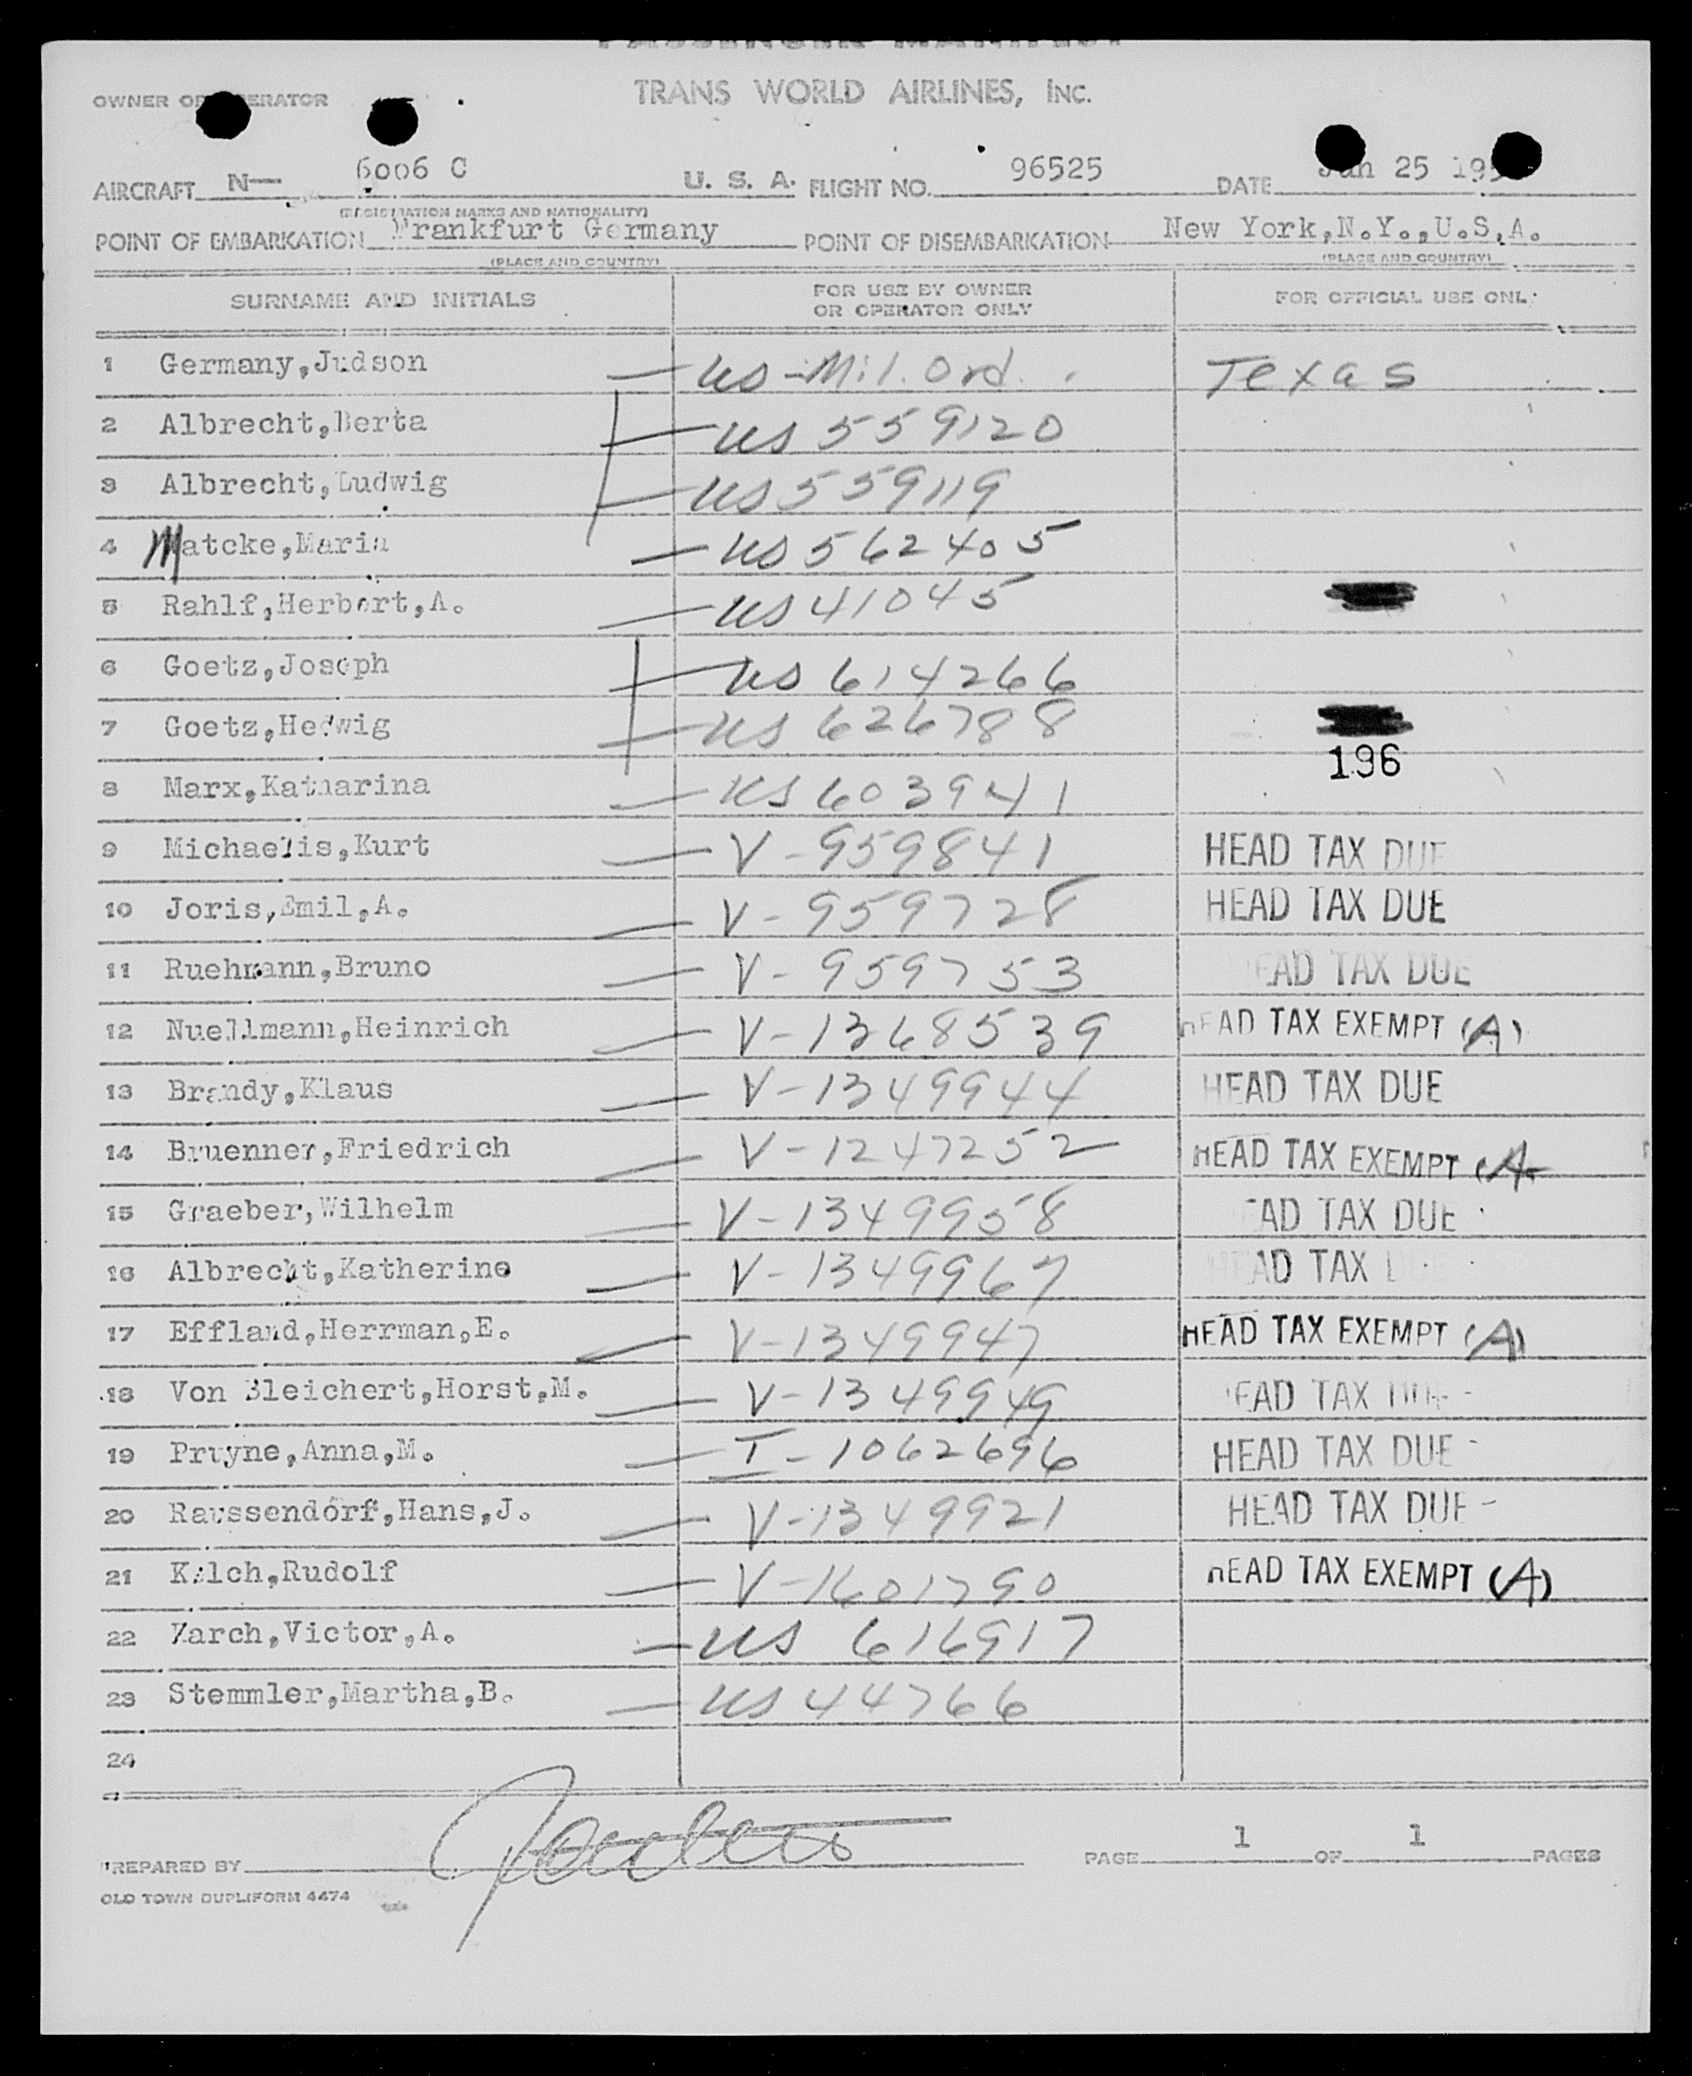 TRANS WORLD AIRLINES, INC.
OWNER OR OPERATOR
AIRCRAFT N- 6006 C U. S. A. FLIGHT NO. 96525 DATE Jan 25
(REGISTRATION MARKS AND NATIONALITY)
POINT OF EMBARKATION Frankfurt Germany POINT OF DISEMBARKATION New York,N.Y.,U.S.A.
(PLACE AND COUNTRY) (PLACE AND COUNTRY)
SURNAME AND INITIALS FOR USE BY OWNER OR OPERATOR ONLY FOR OFFICIAL USE ONL
1 Germany,Judson US-Mil. Ord. Texas
2 Albrecht,Berta US 559120
3 Albrecht,Ludwig US 559119
4 Matcke,Maria US 562405
5 Rahlf,Herbert,A. US 41045
6 Goetz,Joseph US 614266
7 Goetz,Hedwig US 626788
196
8 Marx,Katharina US 603941
9 Michaelis,Kurt V-959841 HEAD TAX DUE
10 Joris,Emil,A. V-959728 HEAD TAX DUE
11 Ruehmann,Bruno V-959753 EAD TAX DUE
12 Nuellmann,Heinrich V-1368539 HEAD TAX EXEMPT (A)
13 Brandy,Klaus V-1349944 HEAD TAX DUE
14 Bruenner,Friedrich V-1247252 HEAD TAX EXEMPT (A
15 Graeber,Wilhelm V-1349958 EAD TAX DUE
16 Albrecht,Katherine V-1349967 HEAD TAX
17 Effland,Herrman,E. V-1349947 HEAD TAX EXEMPT (A)
18 Von Bleichert,Horst,M. V-1349949 EAD TAX DUE
19 Pruyne,Anna,M. I-1062696 HEAD TAX DUE
20 Raussendorf,Hans,J. V-1349921 HEAD TAX DUE
21 Kalch,Rudolf V-1601790 HEAD TAX EXEMPT (A)
22 Zarch,Victor,A. US 616917
23 Stemmler,Martha,B. US 44766
24
PREPARED BY PAGE 1 OF 1 PAGES
OLD TOWN DUPLIFORM 4474